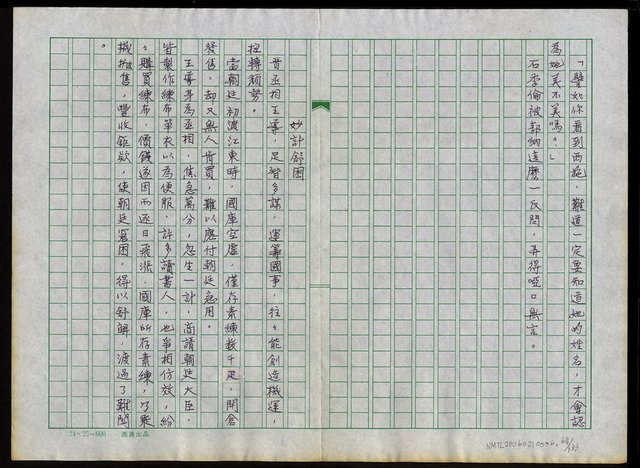 「譬如你看到西施，難道一定要知道她的姓名，才會認
為她美不美嗎？」
石季倫被郗納這麼一反問，弄得啞口無言。
妙計舒困
晉丞相王導，足智多謀，運籌國事，往往能創造機運，
扭轉頹勢。
當朝廷初渡江東時，國庫空虛，僅存素練數千疋，開倉
發售，卻又無人肯買，難以應付朝廷急用。
王導身為丞相，焦急萬分，忽生一計，商請朝廷大臣，
皆製作練布單衣以為便服，許多讀書人，也爭相仿效，紛
紛購買練布，價錢遂因而逐日飛漲，國庫所存素練，乃乘
機推售，豐收鉅款，使朝廷窘困，得以舒解，渡過了難關
。
24×25=600 西源出品
NMTL20060210006
68/133